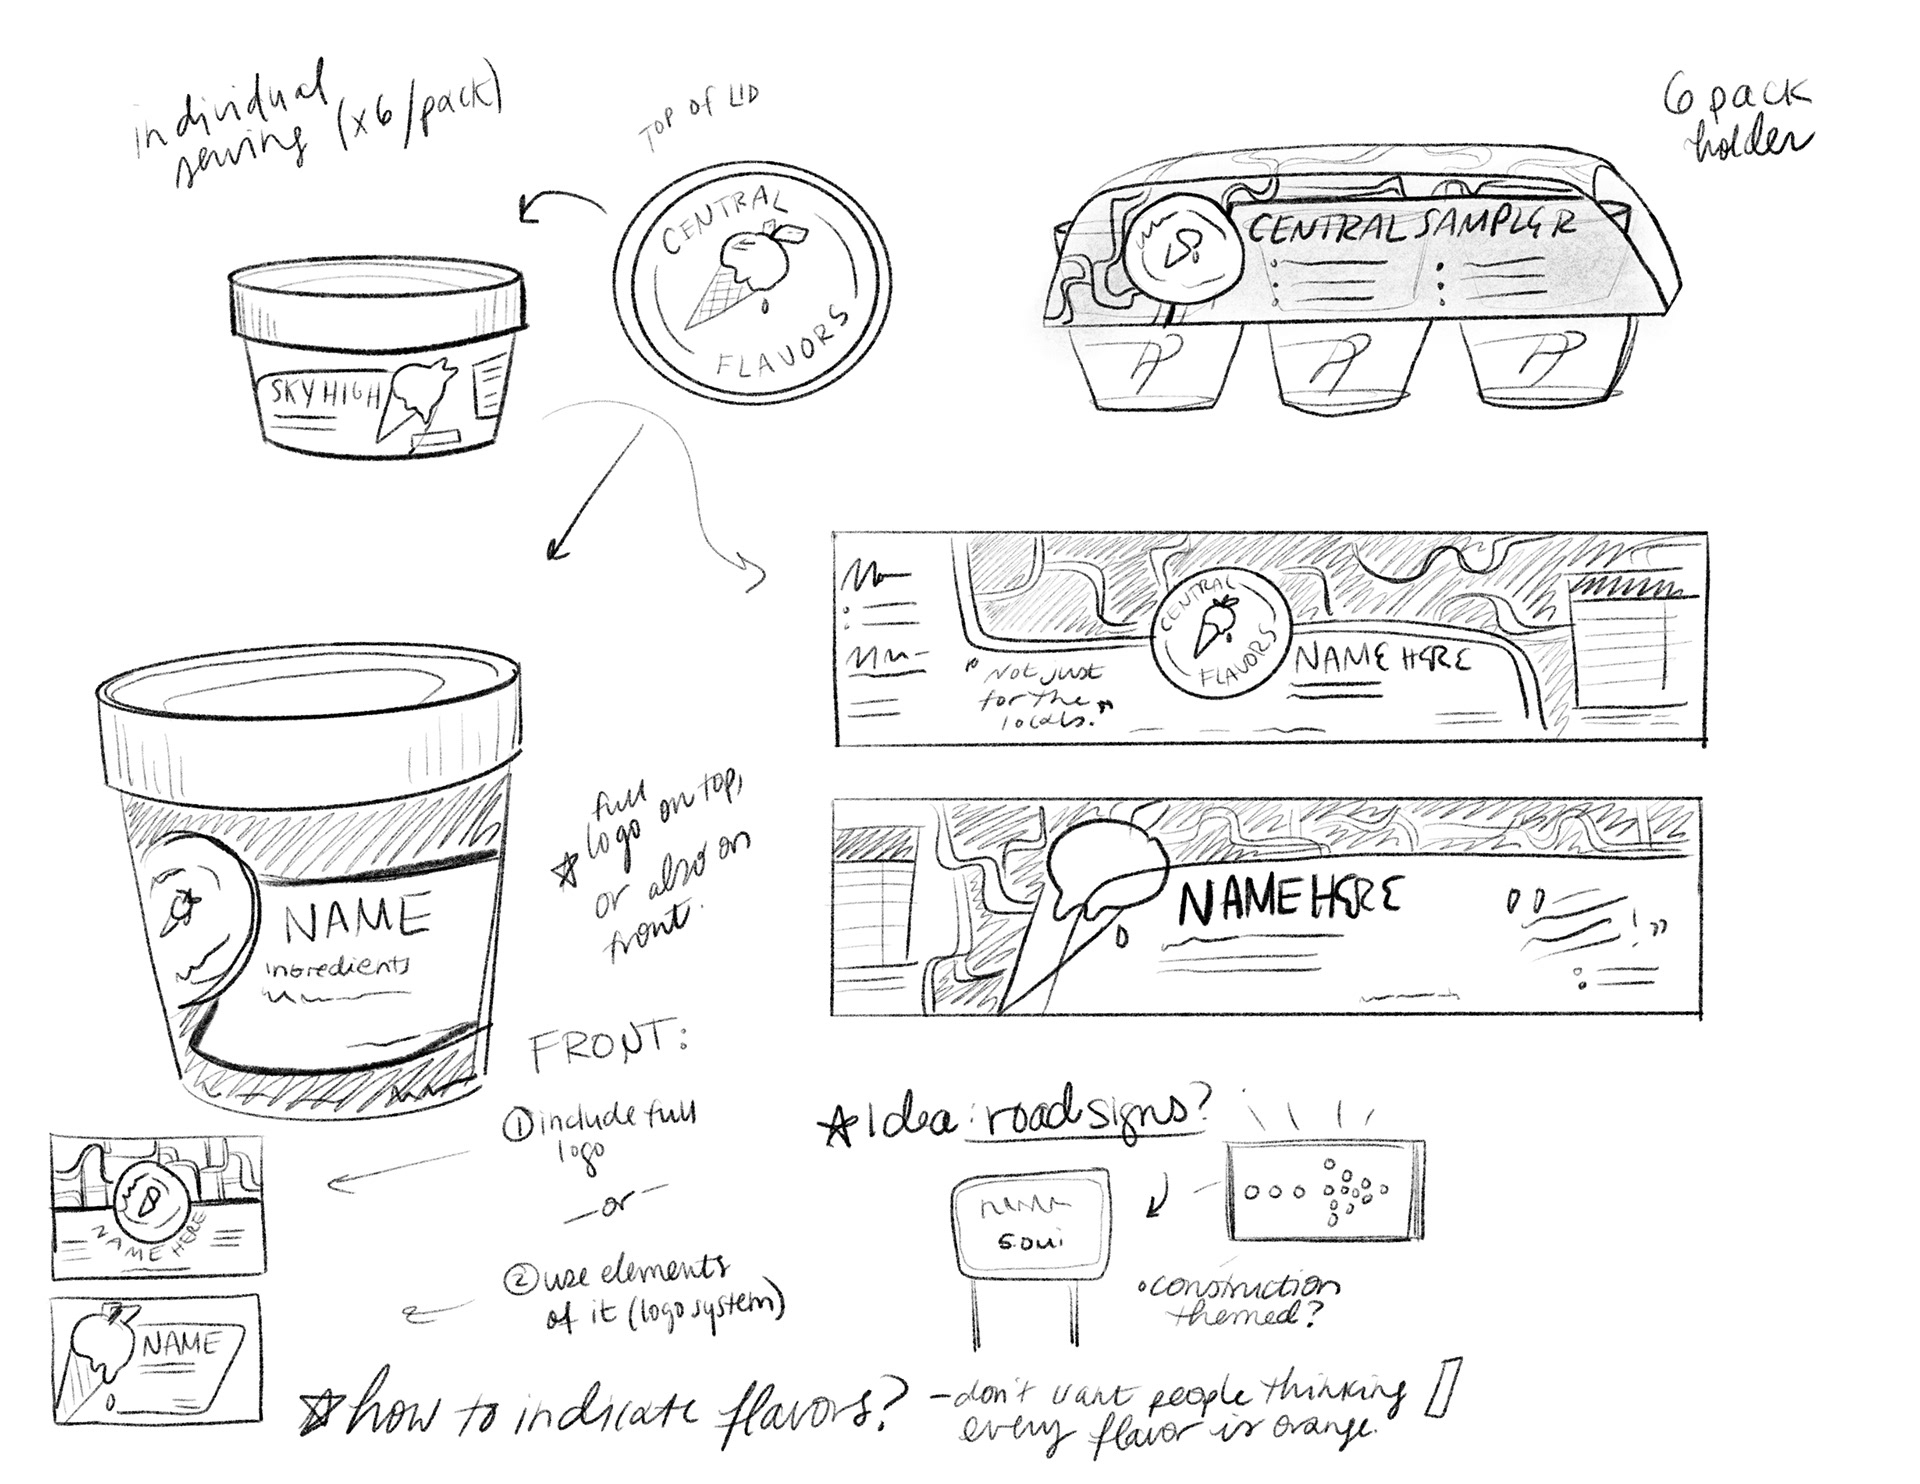 individual
serving (x6/pack)
TOP OF LID
6 pack
holder
CENTRAL
FLAVORS
CENTRAL SAMPLER
SKY HIGH
CENTRAL
FLAVORS
NAME HERE
"Not just
for the
locals."
full
logo on top,
or also on
front.
NAME
ingredients
NAME HERE
FRONT:
① include full
logo
—or—
② use elements
of it (logo system)
NAME HERE
NAME
Idea: road signs?
5.0mi
•construction
themed?
how to indicate flavors?
- don't want people thinking
every flavor is orange.